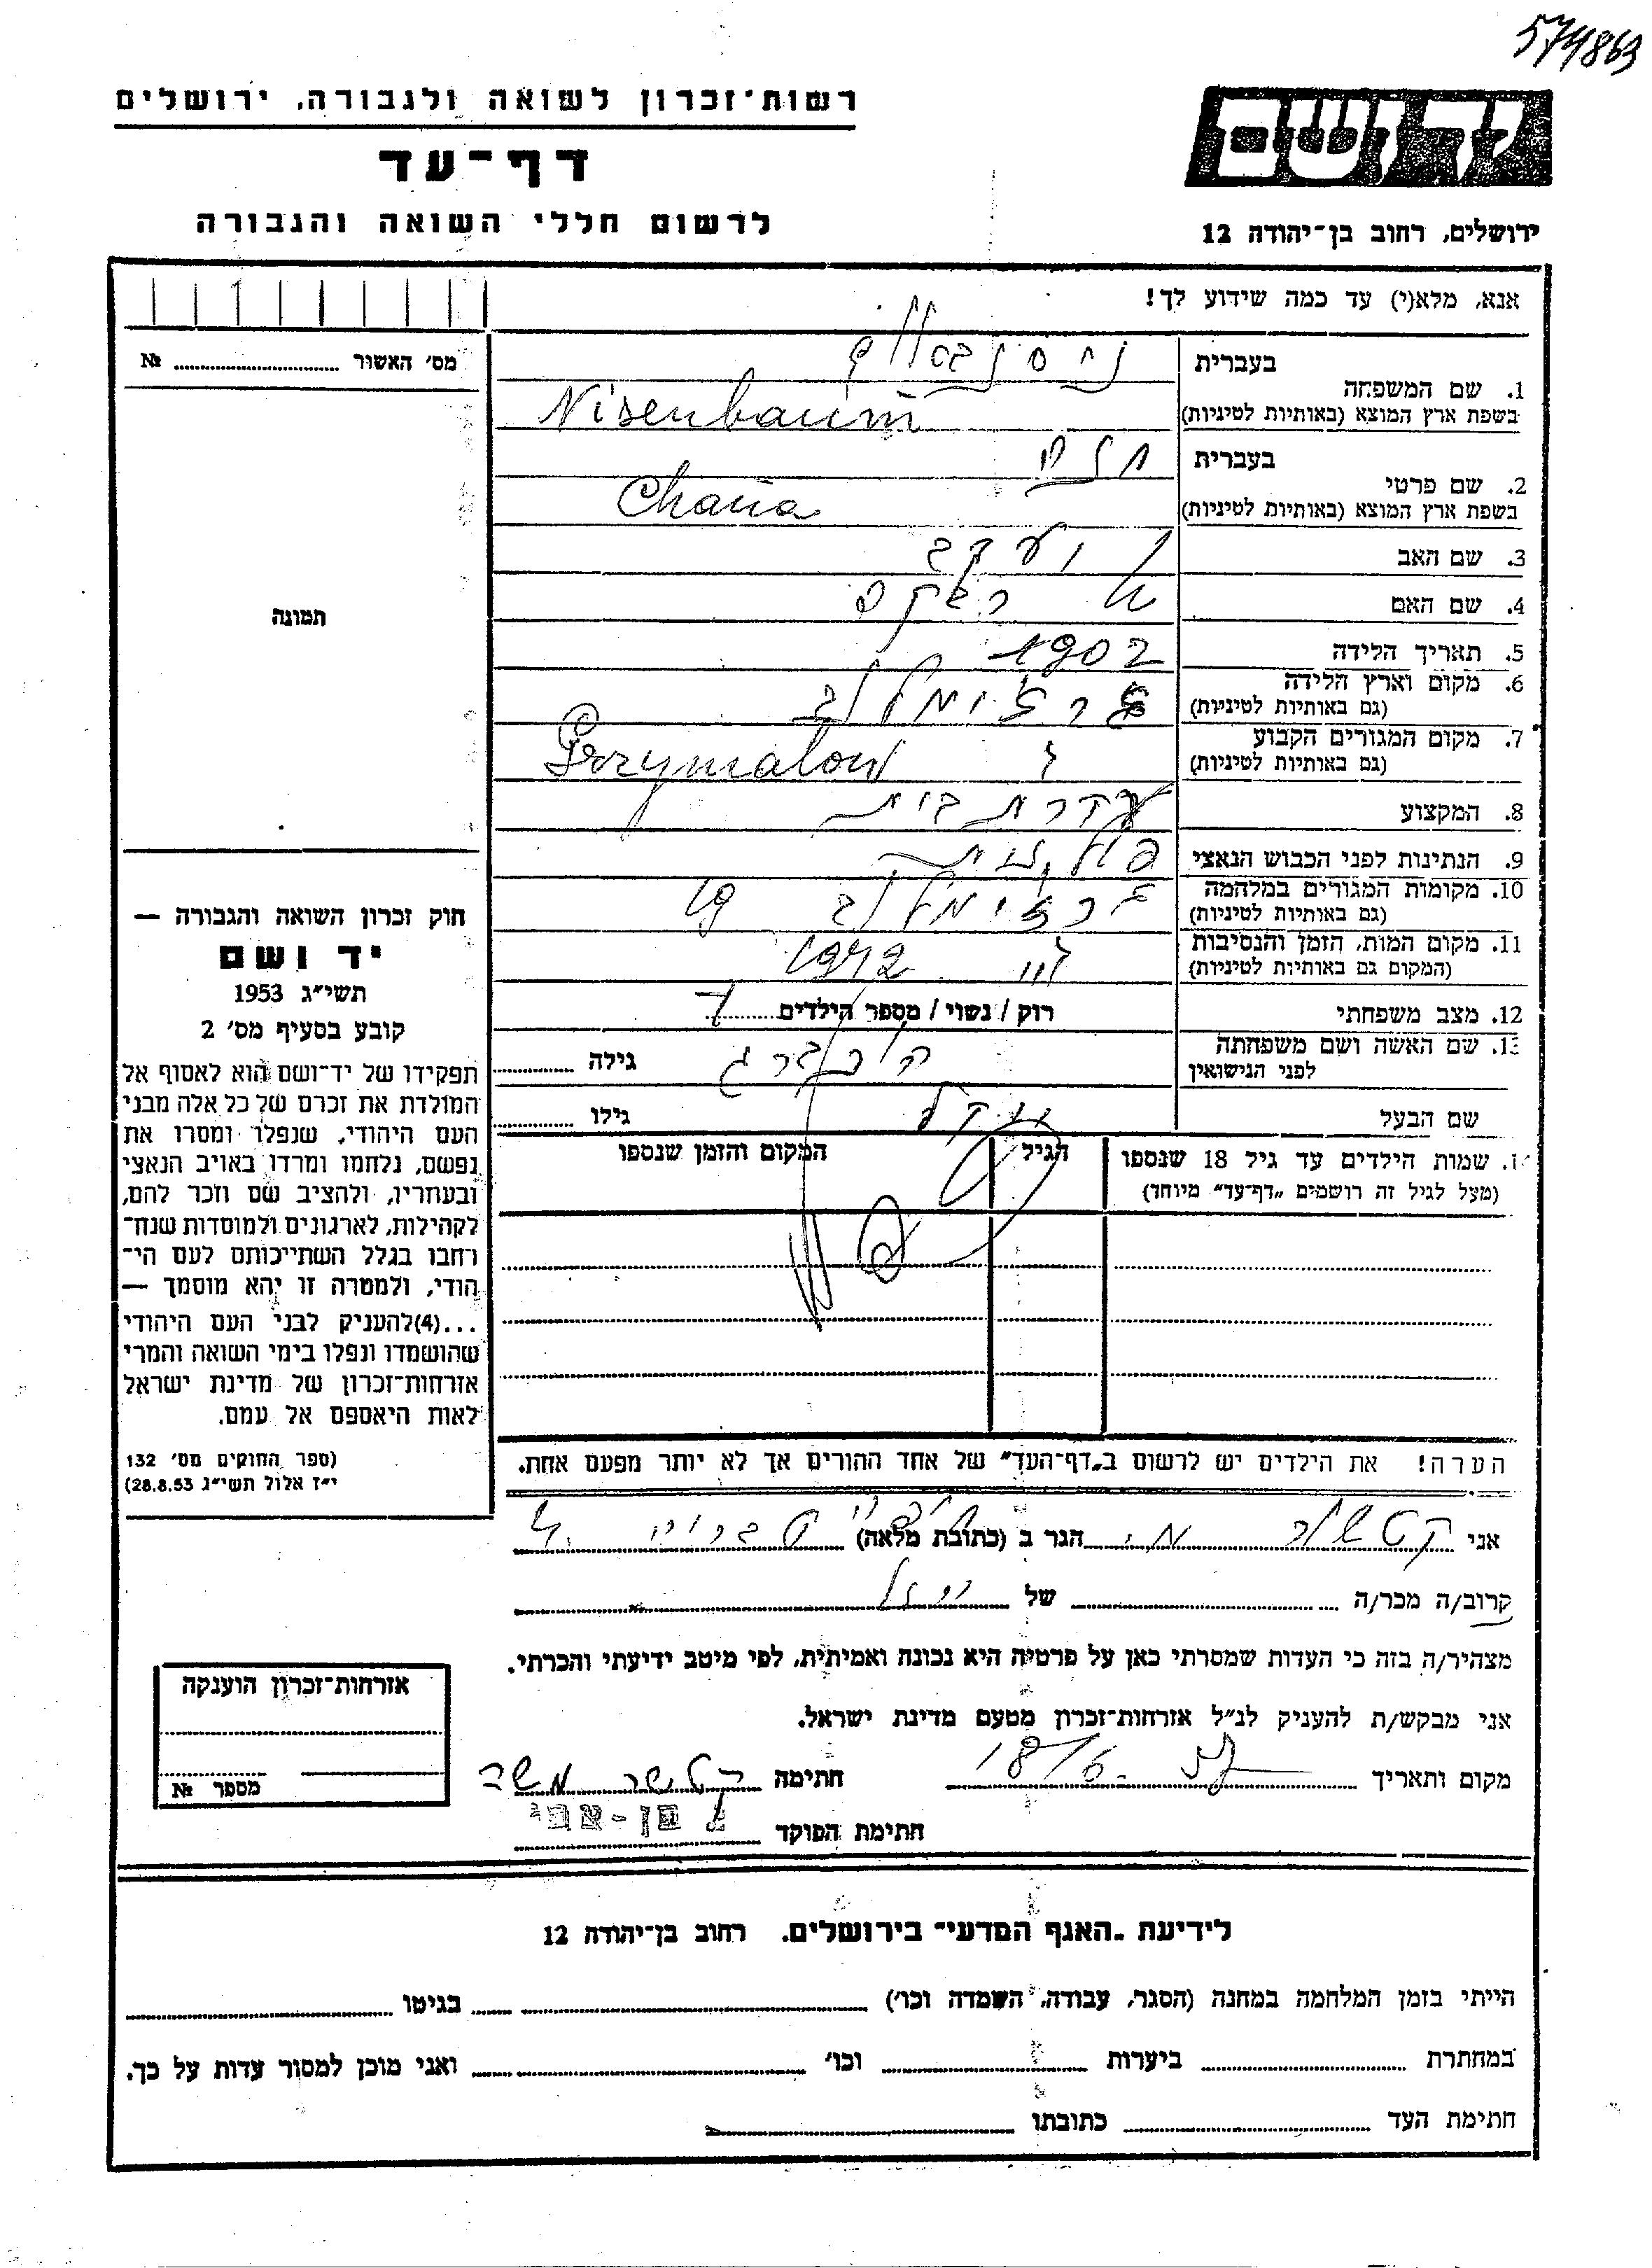 574863
רשות־זכרון לשואה ולגבורה, ירושלים
דף־עד
לרשום חללי השואה והגבורה
ידושם
ירושלים, רחוב בן־יהודה 12
אנא, מלא(י) עד כמה שידוע לך!
מס' האשור № 
1. שם המשפחה
בעברית ניסנבוים
בשפת ארץ המוצא (באותיות לטיניות) Nisenbaum
2. שם פרטי
בעברית חנה
בשפת ארץ המוצא (באותיות לטיניות) Chana
3. שם האב יעקב
4. שם האם רבקה
5. תאריך הלידה 1902
6. מקום וארץ הלידה
(גם באותיות לטיניות) גרזימלוב
7. מקום המגורים הקבוע
(גם באותיות לטיניות) Grzymalow
8. המקצוע עקרת בית
9. הנתינות לפני הכבוש הנאצי פולנית
10. מקומות המגורים במלחמה
(גם באותיות לטיניות) גרזימלוב
11. מקום המות, הזמן והנסיבות
(המקום גם באותיות לטיניות) 1942
12. מצב משפחתי רוק / נשוי / מספר הילדים
13. שם האשה ושם משפחתה
לפני הנישואין גילה
שם הבעל גילו
שמות הילדים עד גיל 18 שנספו
(מעל לגיל זה רושמים "דף־עד" מיוחד)
הגיל
המקום והזמן שנספו
הערה! את הילדים יש לרשום ב"דף־העד" של אחד ההורים אך לא יותר מפעם אחת.
תמונה
חוק זכרון השואה והגבורה —
יד ושם
תשי"ג 1953
קובע בסעיף מס' 2
תפקידו של יד־ושם הוא לאסוף אל
המולדת את זכרם של כל אלה מבני
העם היהודי, שנפלו ומסרו את
נפשם, נלחמו ומרדו באויב הנאצי
ובעוזריו, ולהציב שם וזכר להם,
לקהילות, לארגונים ולמוסדות שנח־
רחבו בגלל השתייכותם לעם הי־
הודי, ולמטרה זו יהא מוסמך —
...(4)להעניק לבני העם היהודי
שהושמדו ונפלו בימי השואה והמרי
אזרחות־זכרון של מדינת ישראל
לאות היאספם אל עמם.
(ספר החוקים מס' 132
י"ז אלול תשי"ג 28.8.53)
אני קטשר הגר ב (כתובת מלאה)
קרוב/ה מכר/ה של
מצהיר/ה בזה כי העדות שמסרתי כאן על פרטיה היא נכונה ואמיתית, לפי מיטב ידיעתי והכרתי.
אני מבקש/ת להעניק לנ"ל אזרחות־זכרון מטעם מדינת ישראל.
מקום ותאריך 18/6 - 57 חתימה קטשר משה
חתימת הפוקד
אזרחות־זכרון הוענקה
מספר №
לידיעת "האגף המדעי" בירושלים. רחוב בן־יהודה 12
הייתי בזמן המלחמה במחנה (הסגר, עבודה, השמדה וכו') בגיטו
במחתרת ביערות וכו' ואני מוכן למסור עדות על כך.
חתימת העד כתובתו